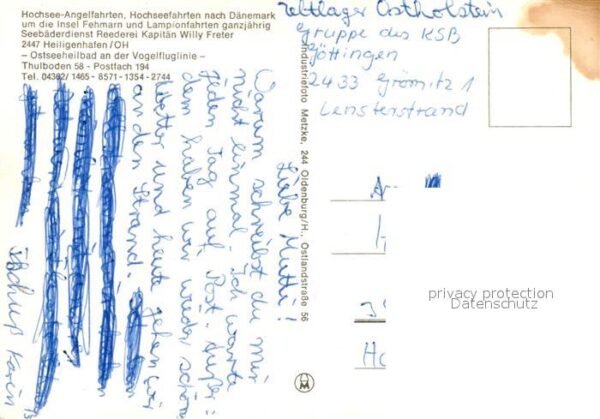 Hochsee-Angelfahrten, Hochseefahrten nach Dänemark
um die Insel Fehmarn und Lampionfahrten ganzjährig
Seebäderdienst Reederei Kapitän Willy Freter
2447 Heiligenhafen/OH
– Ostseeheilbad an der Vogelfluglinie –
Thulboden 58 - Postfach 194
Tel. 04362/ 1465 - 8571 - 1354 - 2744
Zeltlager Ostholstein
Gruppe des KSB
Göttingen
2433 Grömitz 1
Lensterstrand
Liebe Mutti!
Warum schreibst du mir
nicht einmal. Ich warte
jeden Tag auf Post. Außer
dem haben wir wieder schön
Wetter und heute gehen wir
an den Strand.
Tschuß Karin
Industriefoto Metzke, 244 Oldenburg/H., Ostlandstraße 56
privacy protection
Datenschutz